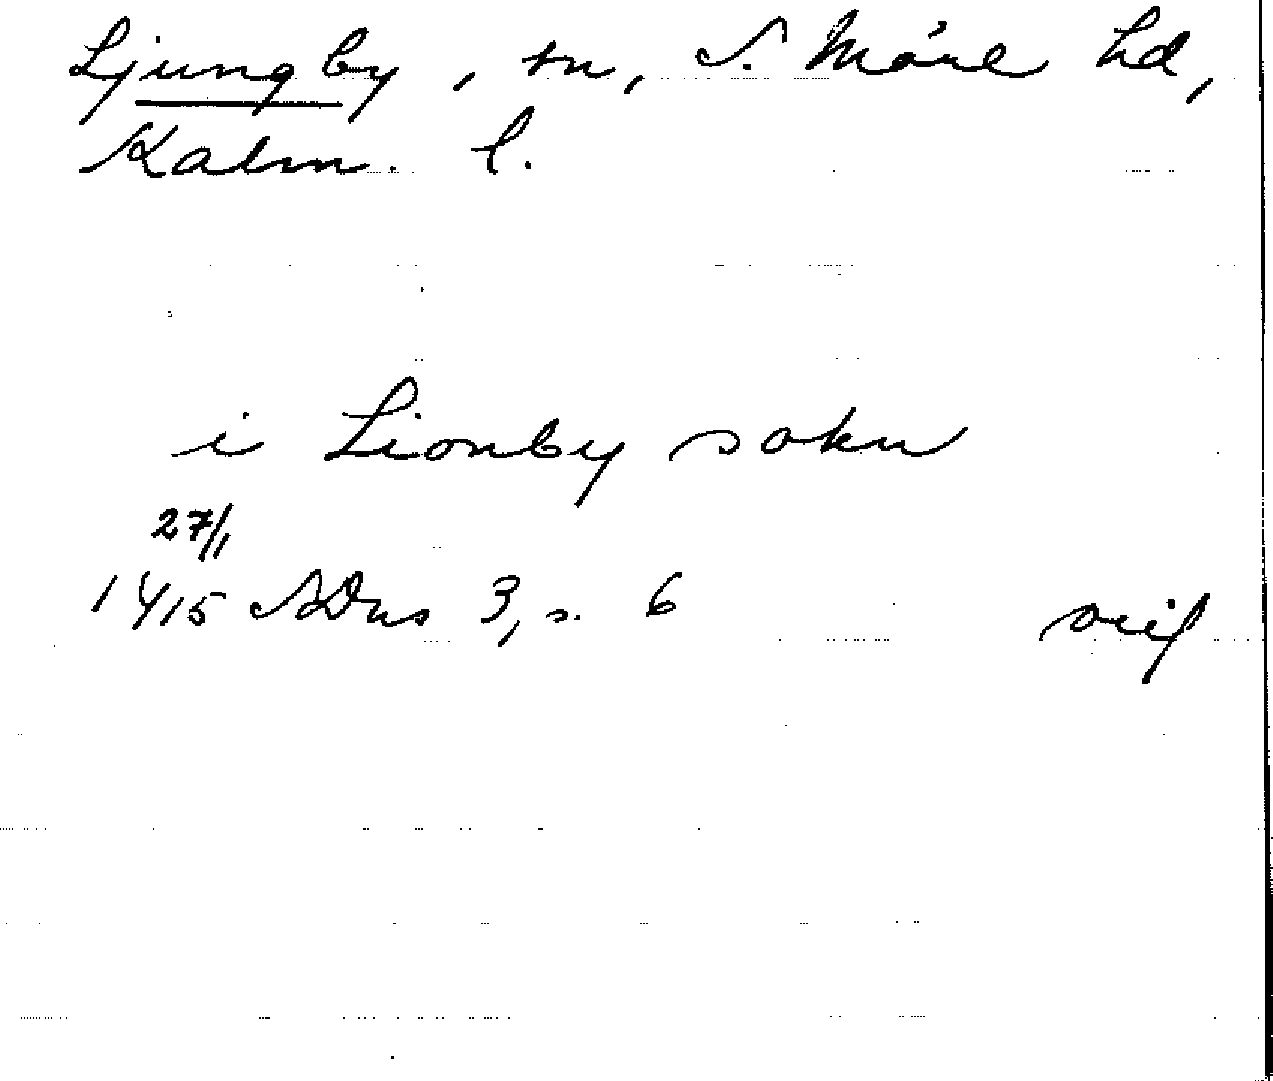 Ljungby, sn, S. Möre hd,
Kalm. l.
i Lionby sokn
27/1
1415 SDns 3, s. 6
orig